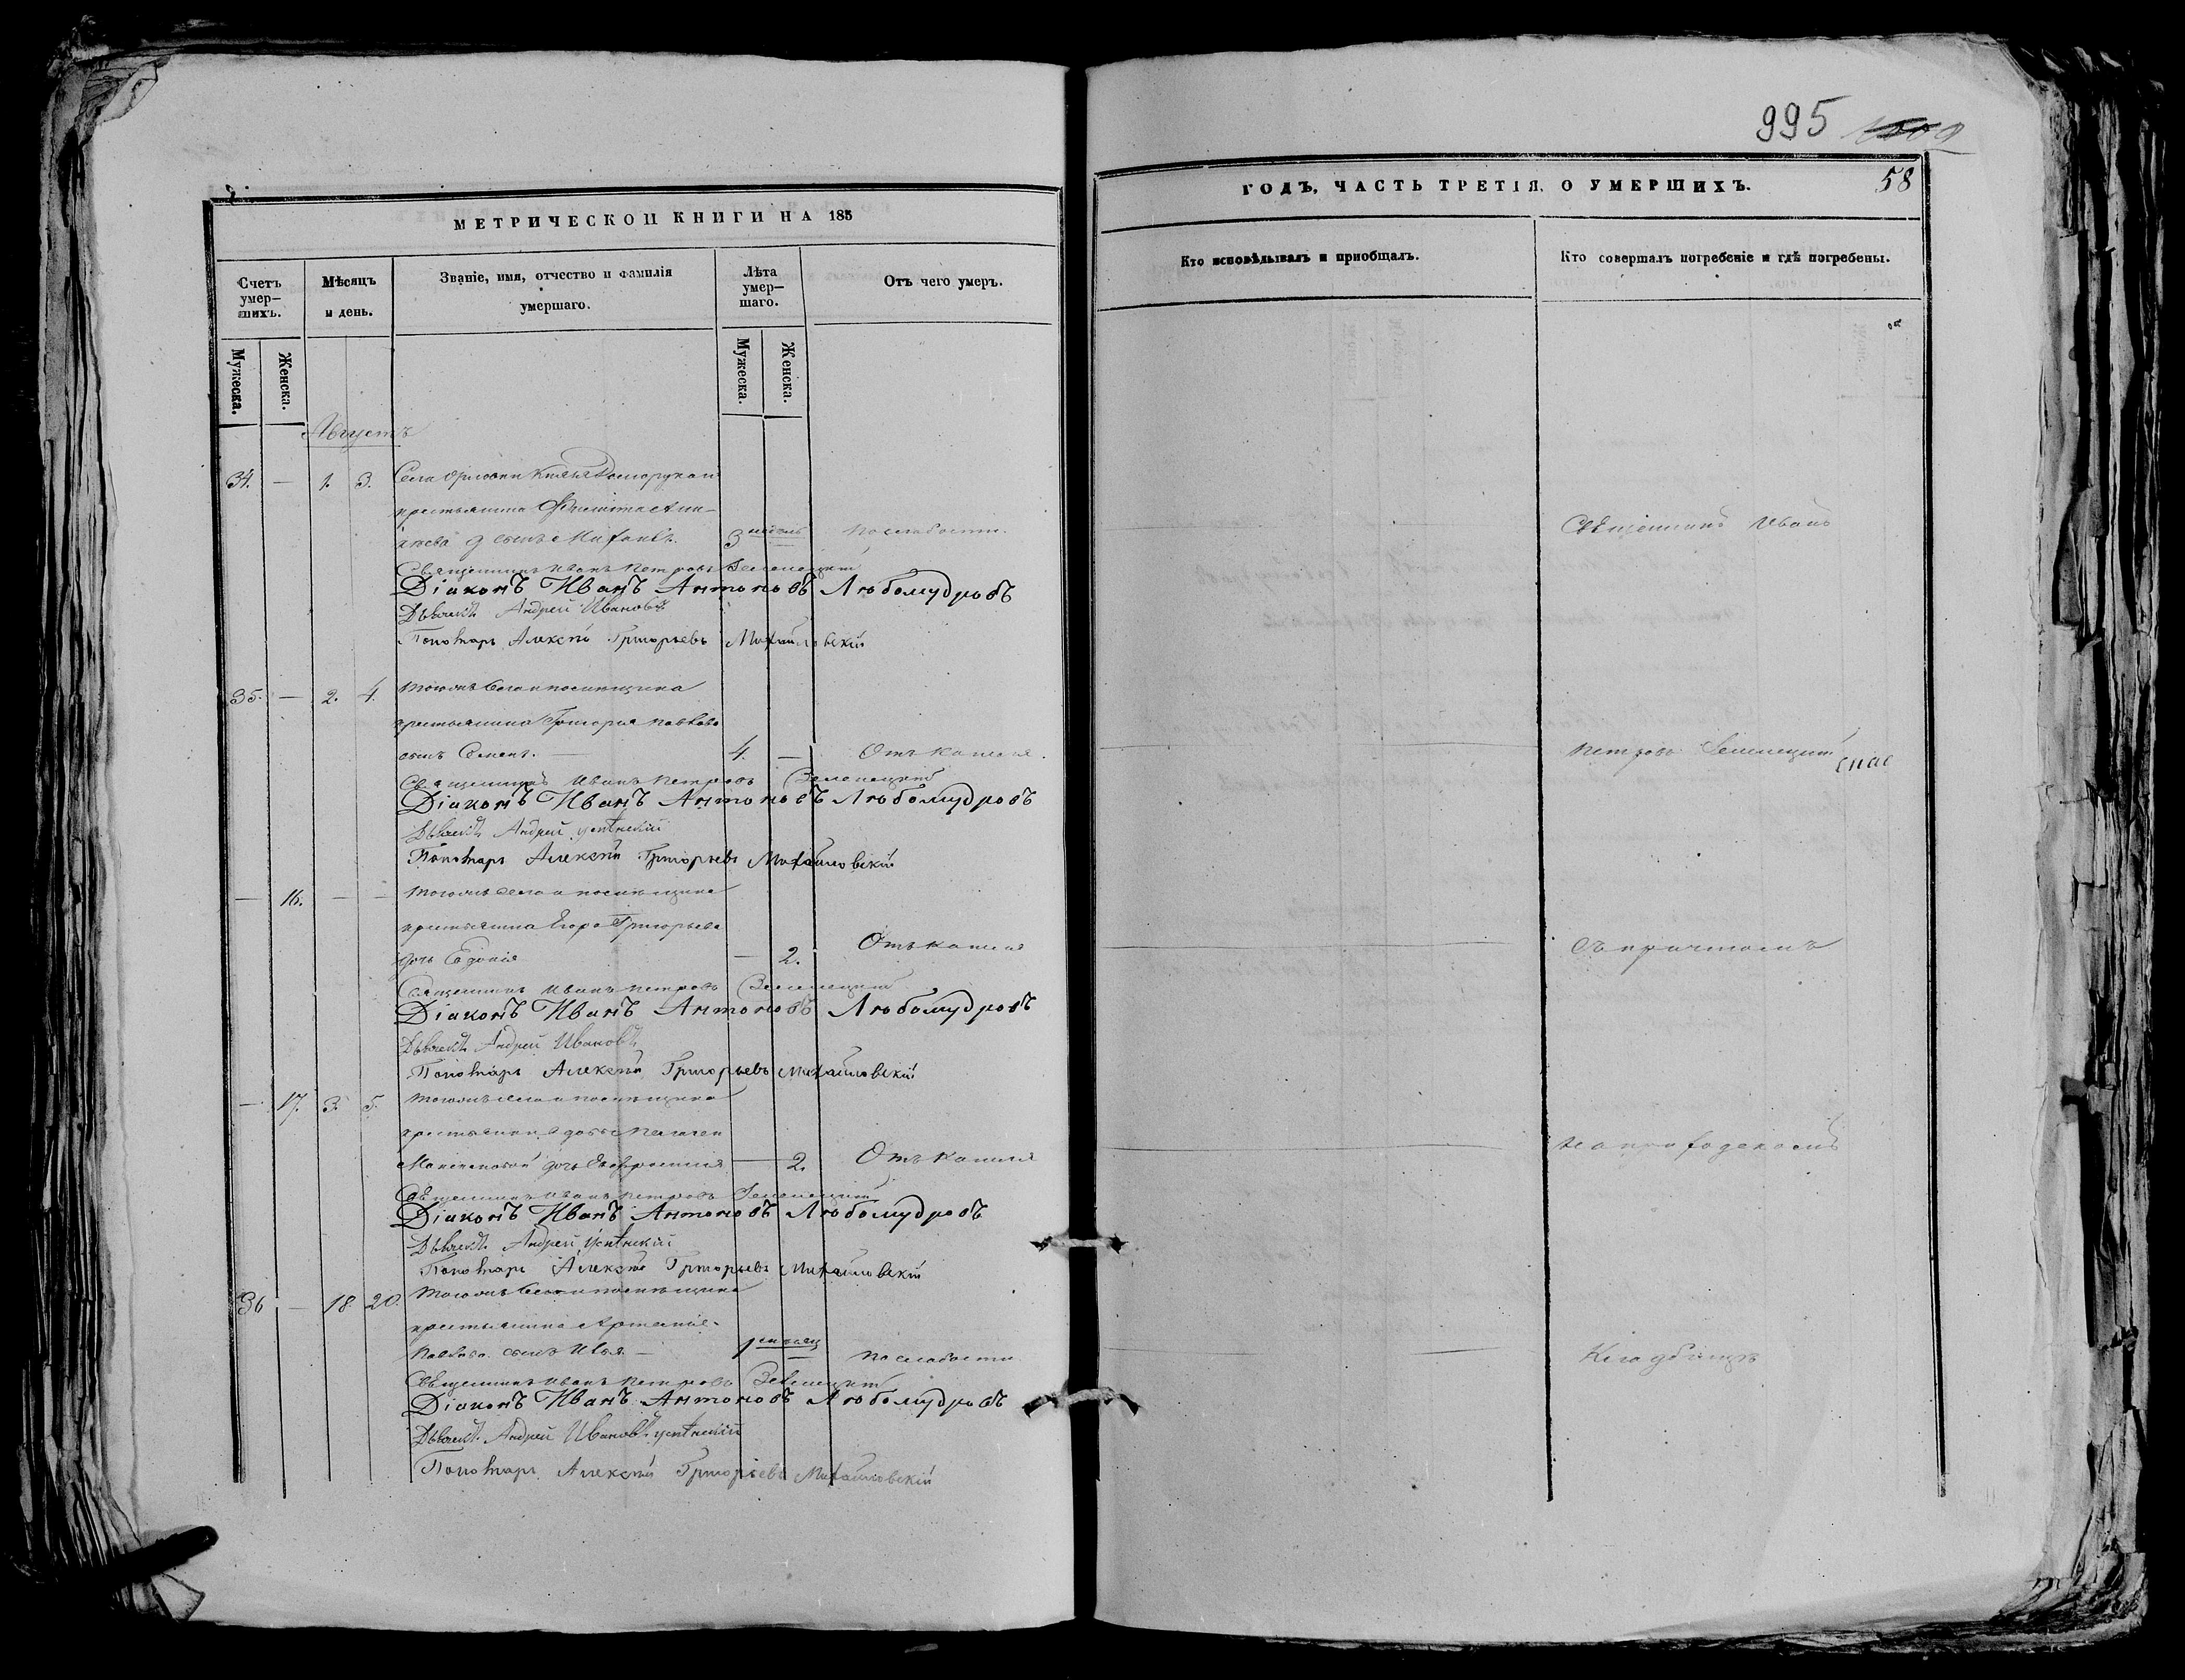 995 1002
58
МЕТРИЧЕСКОЙ КНИГИ НА 185
ГОДЪ, ЧАСТЬ ТРЕТІЯ, О УМЕРШИХЪ.
Счетъ умер–шихъ.
Мѣсяцъ и день.
Званіе, имя, отчество и фамилія умершаго.
Лѣта умер–шаго.
Отъ чего умеръ.
Кто исповѣдывалъ и пріобщалъ.
Кто совершалъ погребеніе и гдѣ погребены.
Мужеска.
Женска.
Мужеска.
Женска.
Августъ
34. — 1. 3. Села Орловки Князя Долгорукаго
крестьянина
сынъ 3 по слабости.
Священникъ Иванъ Петровъ Зеленецкій
Діаконъ Иванъ Антоновъ Любомудровъ
Дьячекъ Андрей Ивановъ
Пономарь Алексѣй Григорьевъ Михайловскій
35. — 2. 4. тогожъ села и помѣщика
крестьянина Григорія Павлова
сынъ Семенъ. — 4. — Отъ кашля.
Священникъ Иванъ Петровъ Зеленецкій
Діаконъ Иванъ Антоновъ Любомудровъ
Дьячекъ Андрей Успѣнскій
Пономарь Алексѣй Григорьевъ Михайловскій
— 16. — — тогожъ села и помѣщика
крестьянина Егора Григорьева
дочь Евдокія — 2. Отъ кашля
Священникъ Иванъ Петровъ Зеленецкій
Діаконъ Иванъ Антоновъ Любомудровъ
Дьячекъ Андрей Ивановъ
Пономарь Алексѣй Григорьевъ Михайловскій
— 17. 3. 5. тогожъ села и помѣщика
дочь Евфросинія — 2. Отъ кашля
Священникъ Иванъ Петровъ Зеленецкій
Діаконъ Иванъ Антоновъ Любомудровъ
Дьячекъ Андрей Успѣнскій
Пономарь Алексѣй Григорьевъ Михайловскій
36 — 18. 20. тогожъ села и помѣщика
крестьянина
Павлова сынъ Илья. — по слабости
Священникъ Иванъ Петровъ Зеленецкій
Діаконъ Иванъ Антоновъ Любомудровъ
Дьячекъ Андрей Ивановъ Успѣнскій
Пономарь Алексѣй Григорьевъ Михайловскій
Священникъ Иванъ
Петровъ Зеленецкій
съ причтомъ
на приходскомъ
Кладбищѣ